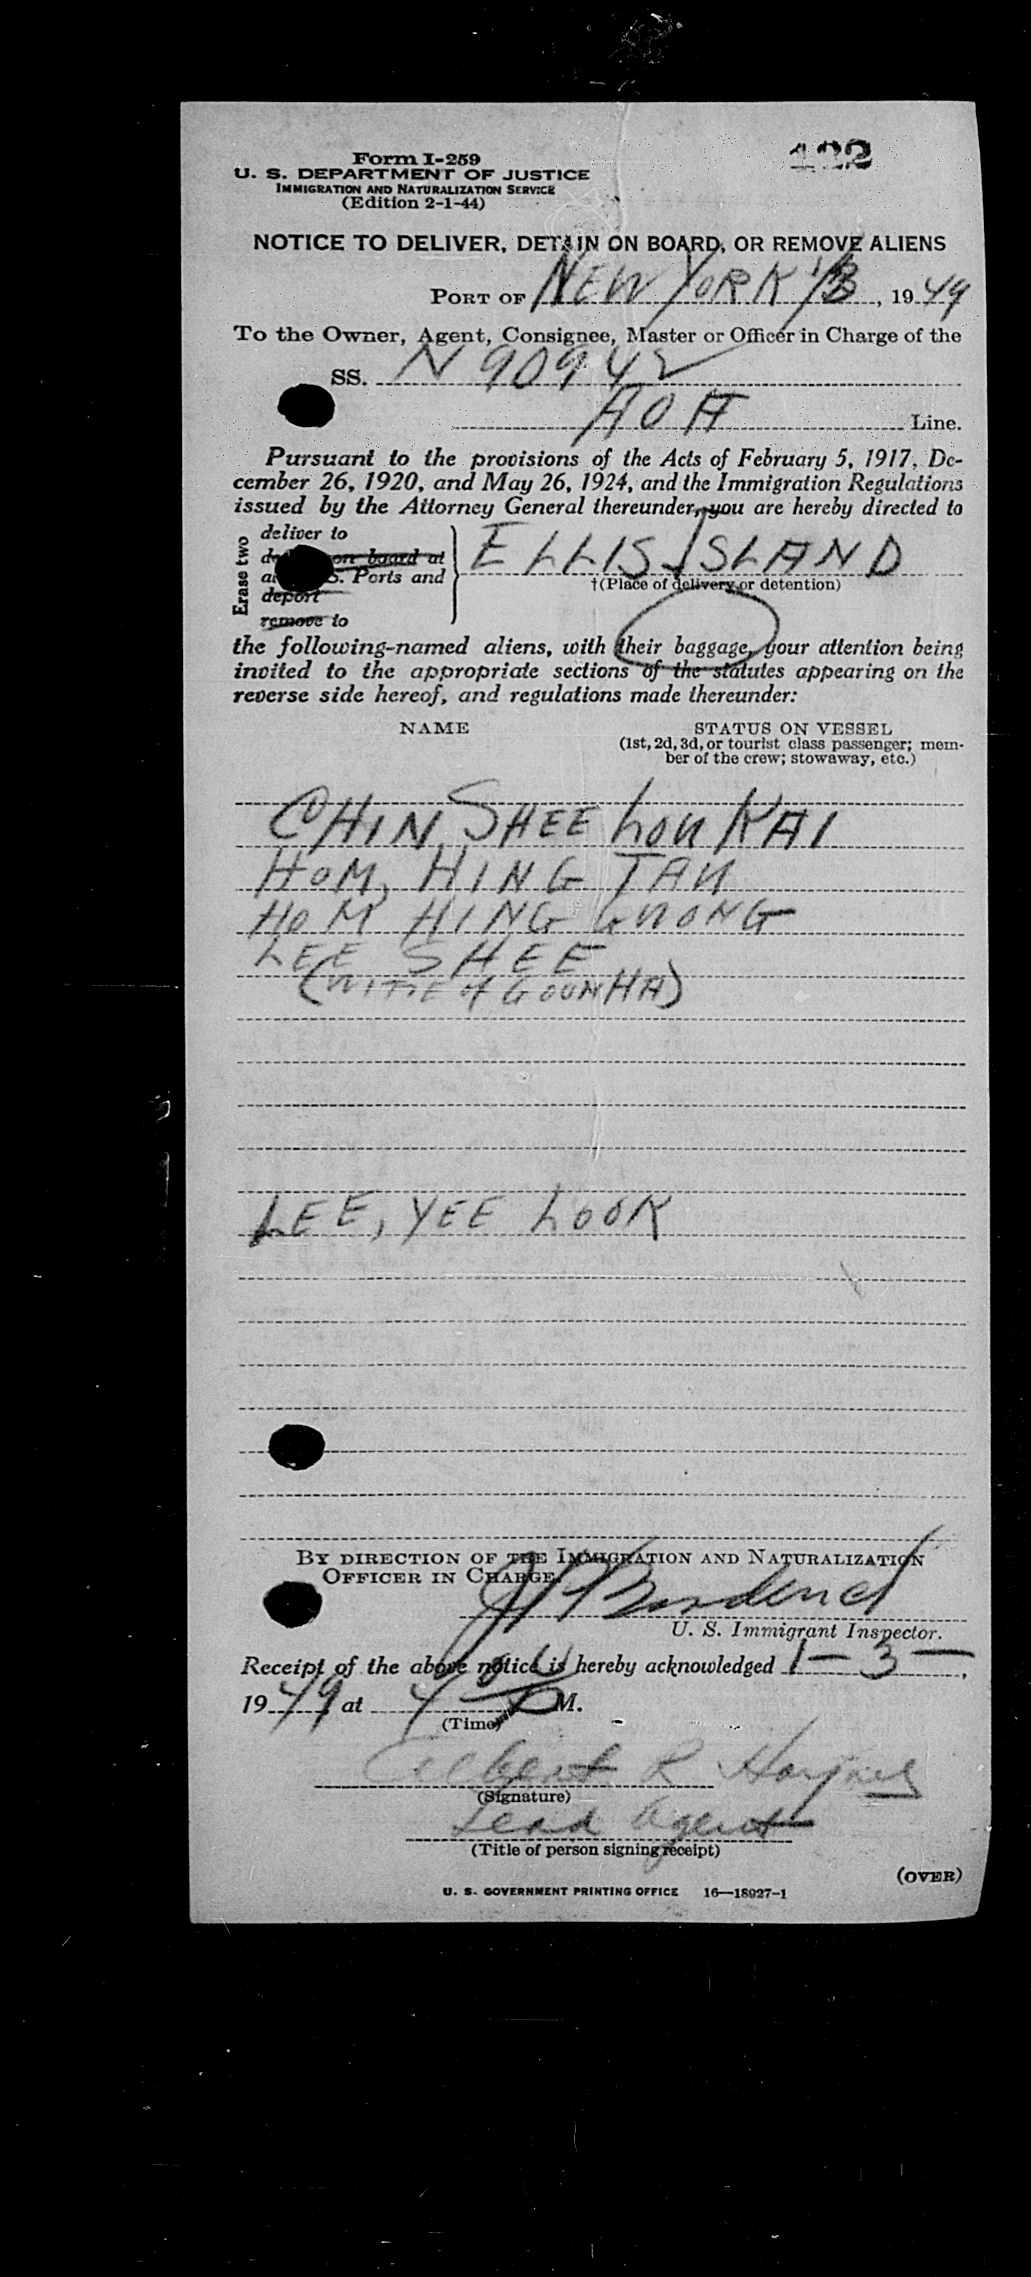 Form I-259
U. S. DEPARTMENT OF JUSTICE
IMMIGRATION AND NATURALIZATION SERVICE
(Edition 2-1-44)
122
NOTICE TO DELIVER, DETAIN ON BOARD, OR REMOVE ALIENS
PORT OF NEW YORK 1/3, 1949
To the Owner, Agent, Consignee, Master or Officer in Charge of the
SS. N 90942
AOA Line.
Pursuant to the provisions of the Acts of February 5, 1917, De-
cember 26, 1920, and May 26, 1924, and the Immigration Regulations
issued by the Attorney General thereunder, you are hereby directed to
Erase two
deliver to
on board at
S. Ports and
deport
remove to
ELLIS ISLAND
†(Place of delivery or detention)
the following-named aliens, with their baggage, your attention being
invited to the appropriate sections of the statutes appearing on the
reverse side hereof, and regulations made thereunder:
NAME
STATUS ON VESSEL
(1st, 2d, 3d, or tourist class passenger; mem-
ber of the crew; stowaway, etc.)
CHIN SHEE LOU KAI
HOM, HING TAU
HOM HING GUONG
LEE SHEE
(WIFE of GOUN HA)
LEE, YEE LOOK
BY DIRECTION OF THE IMMIGRATION AND NATURALIZATION
OFFICER IN CHARGE.
U. S. Immigrant Inspector.
Receipt of the above notice is hereby acknowledged 1-3-,
1949 at 4 P M.
(Time)
Albert R
(Signature)
Lead Agent
(Title of person signing receipt)
(OVER)
U. S. GOVERNMENT PRINTING OFFICE 16—18927-1